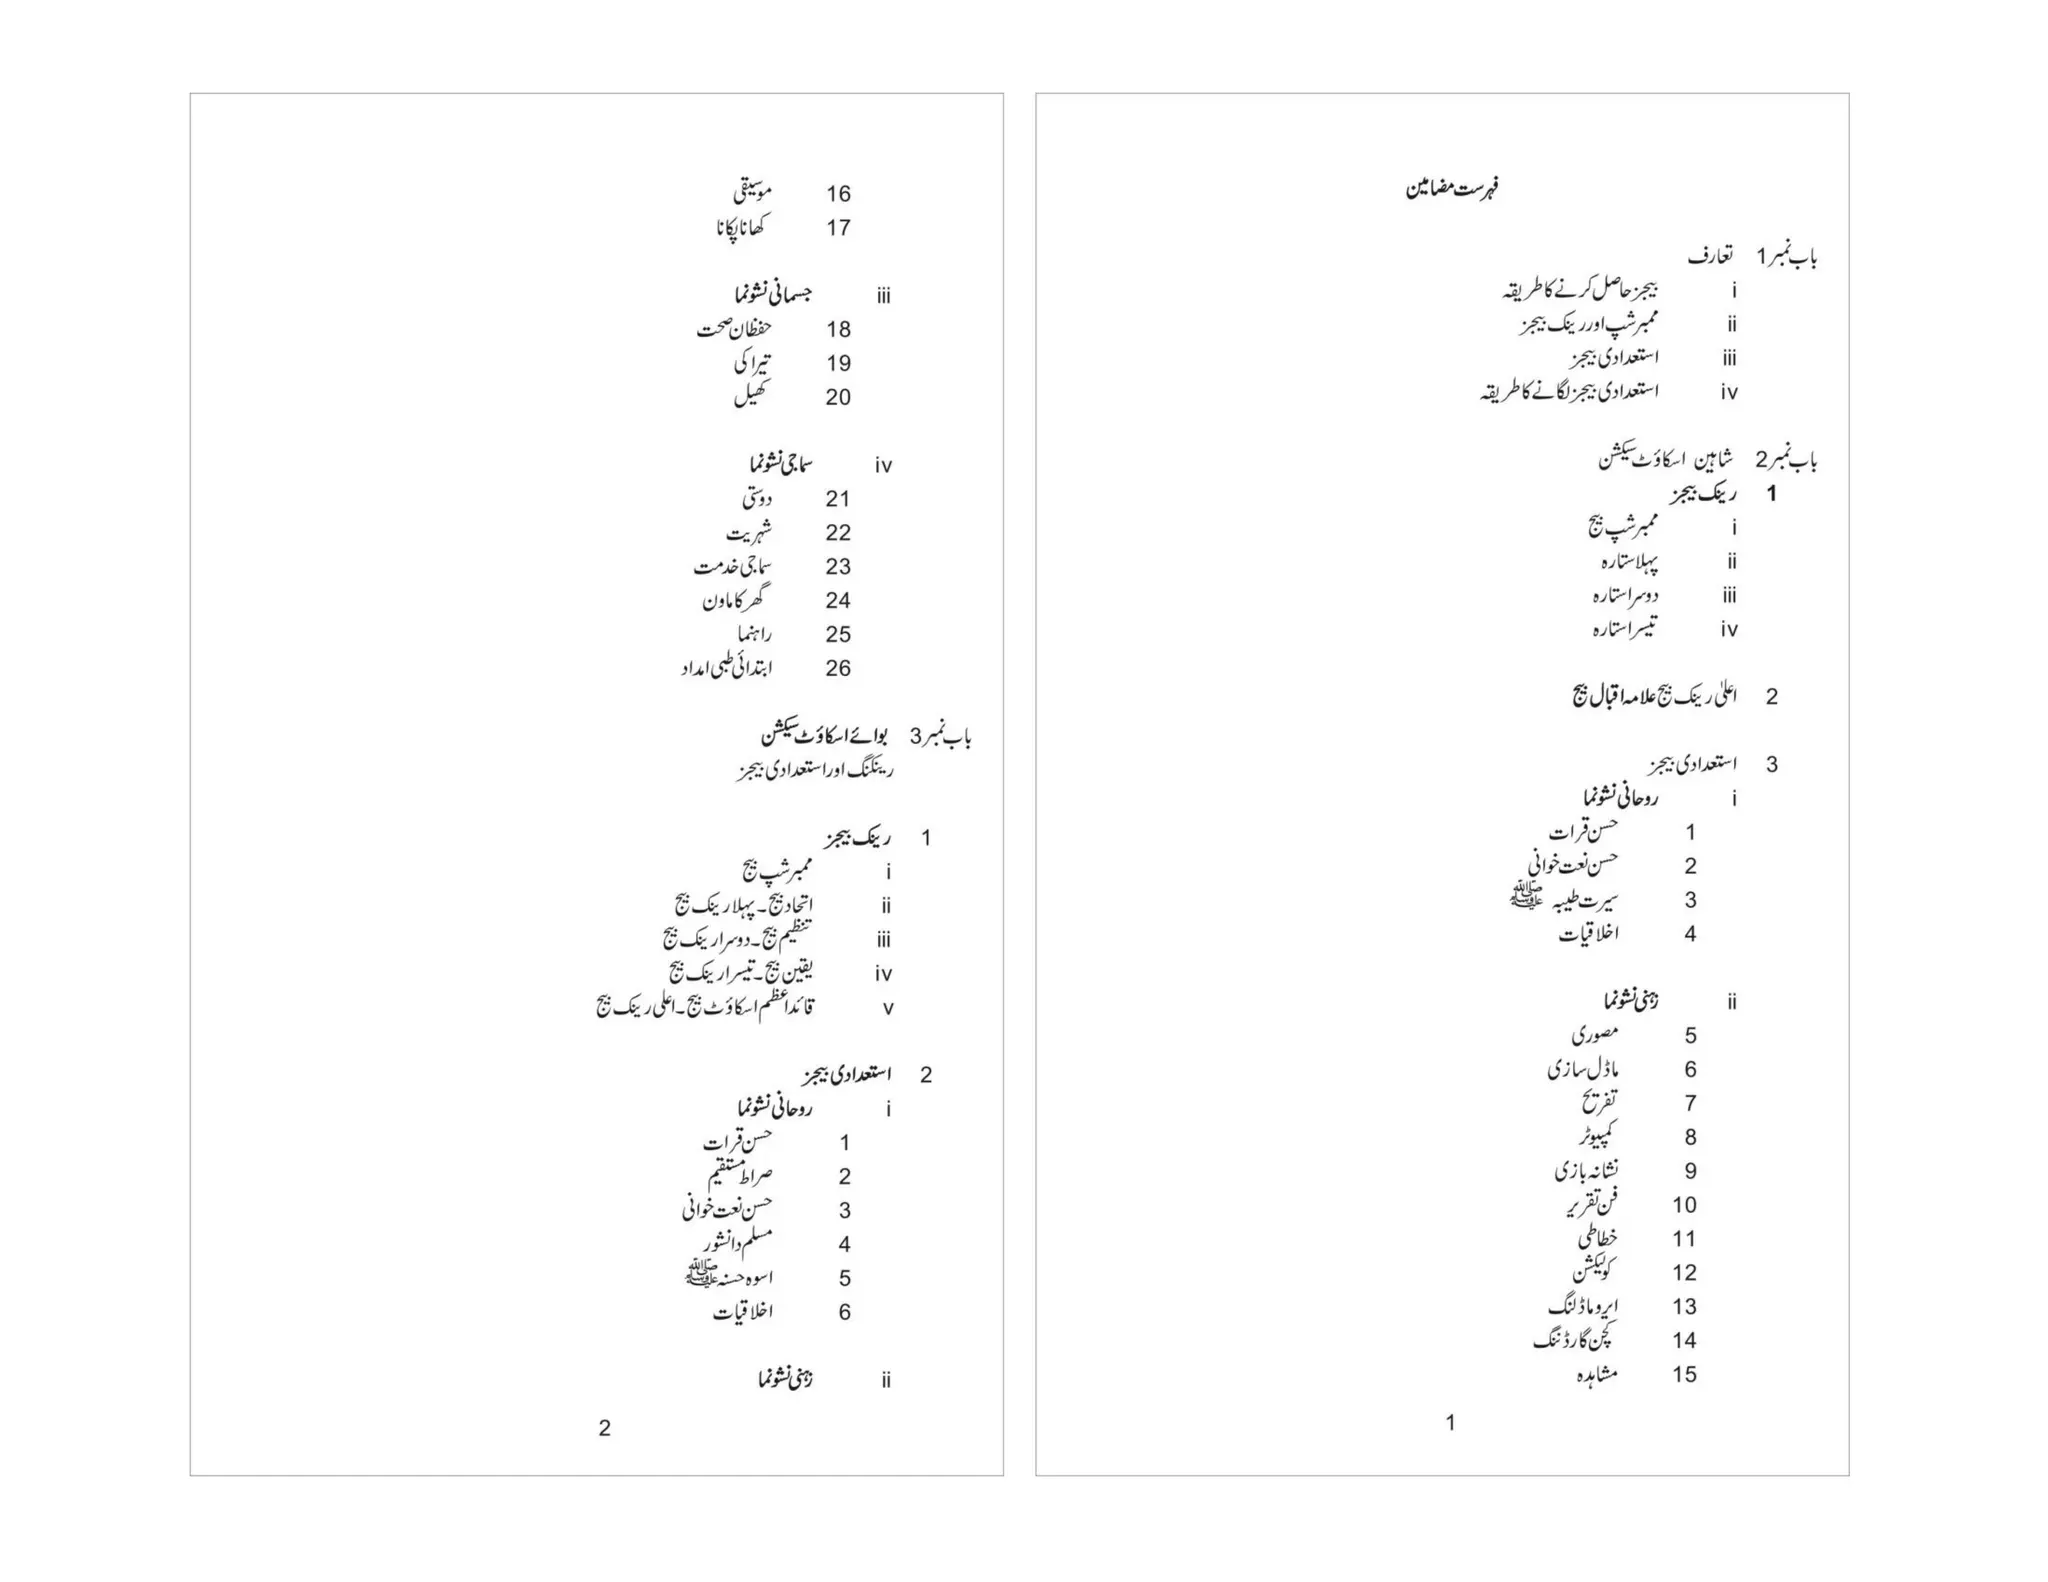 فہرست مضامین
باب نمبر 1 تعارف
i بیجز حاصل کرنے کا طریقہ
ii ممبر شپ اور رینک بیجز
iii استعدادی بیجز
iv استعدادی بیجز لگانے کا طریقہ
باب نمبر 2 شاہین اسکاؤٹ سیکشن
1 رینک بیجز
i ممبر شپ بیج
ii پہلا ستارہ
iii دوسرا ستارہ
iv تیسرا ستارہ
2 اعلیٰ رینک بیج علامہ اقبال بیج
3 استعدادی بیجز
i روحانی نشونما
1 حسن قرات
2 حسن نعت خوانی
3 سیرت طیبہ ﷺ
4 اخلاقیات
ii زہنی نشونما
5 مصوری
6 ماڈل سازی
7 تفریح
8 کمپیوٹر
9 نشانہ بازی
10 فن تقریر
11 خطاطی
12 کولیکشن
13 ایرو ماڈلنگ
14 کچن گارڈننگ
15 مشاہدہ
1
16 موسیقی
17 کھانا پکانا
iii جسمانی نشونما
18 حفظان صحت
19 تیراکی
20 کھیل
iv سماجی نشونما
21 دوستی
22 شہریت
23 سماجی خدمت
24 گھر کا ماون
25 راہنما
26 ابتدائی طبی امداد
باب نمبر 3 بوائے اسکاؤٹ سیکشن
رینکنگ اور استعدادی بیجز
1 رینک بیجز
i ممبر شپ بیج
ii اتحاد بیج۔ پہلا رینک بیج
iii تنظیم بیج۔ دوسرا رینک بیج
iv یقین بیج۔ تیسرا رینک بیج
v قائداعظم اسکاؤٹ بیج۔ اعلی رینک بیج
2 استعدادی بیجز
i روحانی نشونما
1 حسن قرات
2 صراط مستقیم
3 حسن نعت خوانی
4 مسلم دانشور
5 اسوہ حسنہ ﷺ
6 اخلاقیات
ii زہنی نشونما
2